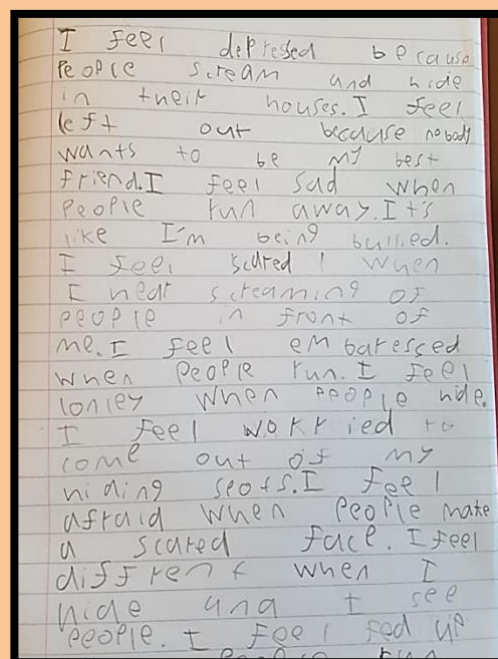 I feel depressed because
people scream and hide
in their houses. I feel
left out because nobody
wants to be my best
friend. I feel sad when
people run away. It's
like I'm being bullied.
I feel scared when
I hear screaming of
people in front of
me. I feel embaressed
when people run. I feel
lonley when people hide.
I feel workried to
come out of my
hiding spots. I feel
afraid when people make
a scared face. I feel
diffrent when I
hide and I see
people. I feel fed up
people run